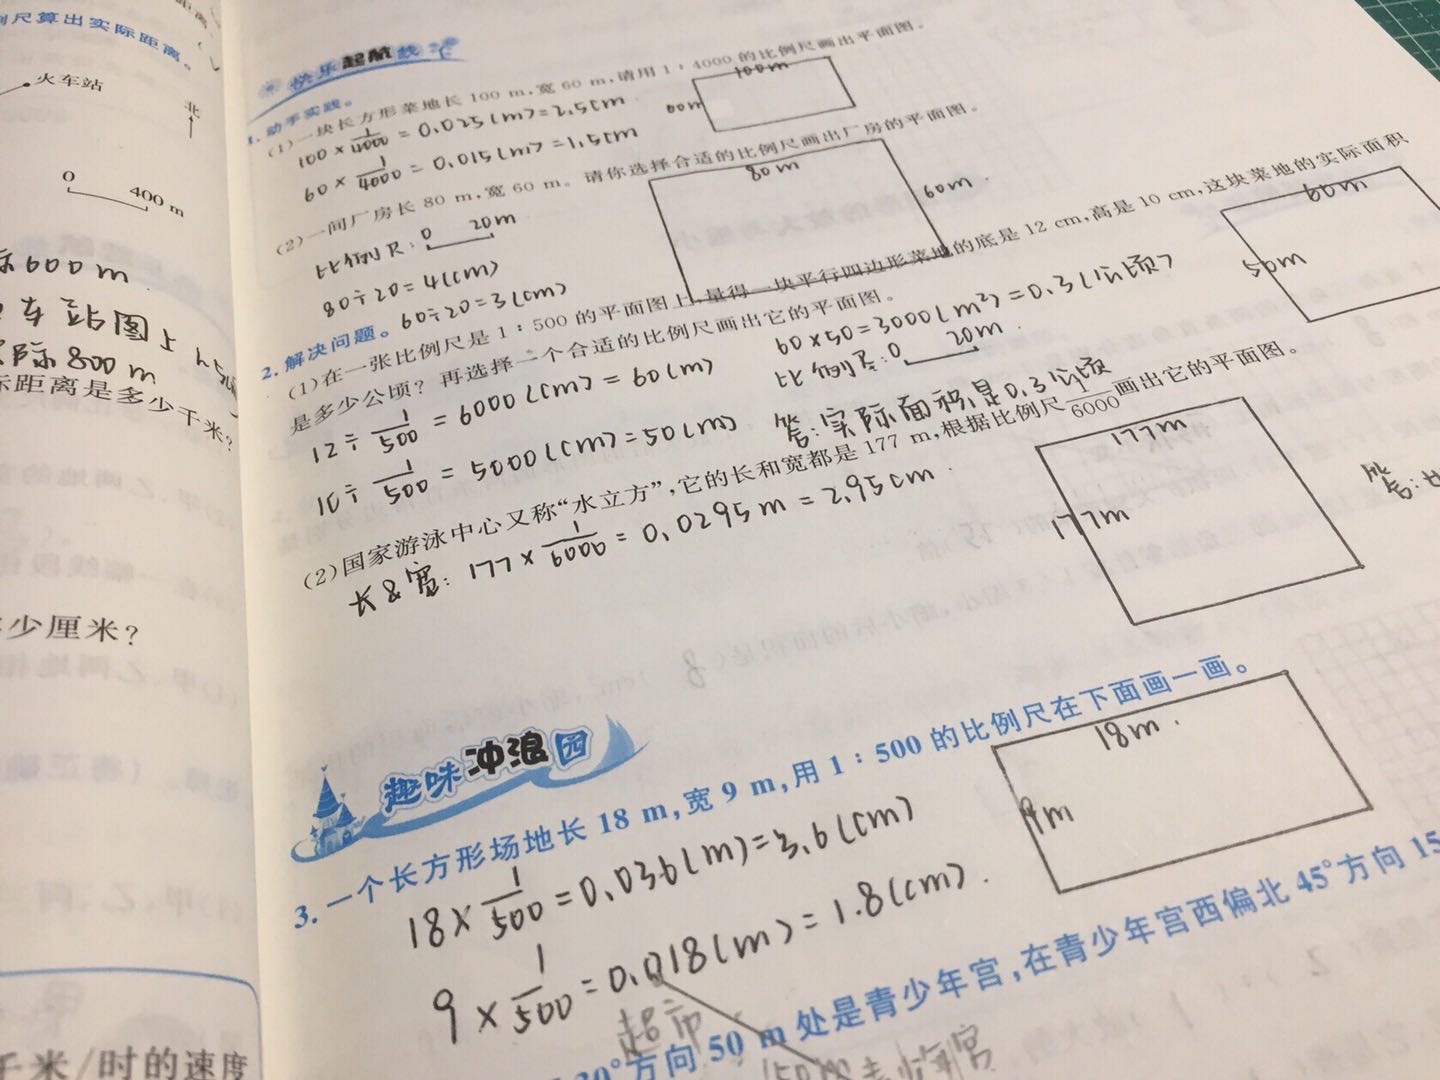 尺算出实际距离。
火车站
北
0 400 m
600 m
车站图上
实际800 m
际距离是多少千米?
多少厘米?
千米/时的速度
快乐起航线
1. 动手实践。
(1)一块长方形菜地长 100 m,宽 60 m,请用 1:4000 的比例尺画出平面图。
100×1/4000=0.025(m)=2.5cm
60×1/4000=0.015(m)=1.5cm
100m
(2)一间厂房长 80 m,宽 60 m。请你选择合适的比例尺画出厂房的平面图。
比例尺:0 20m
80÷20=4(cm)
60÷20=3(cm)
80m
60m
2. 解决问题。
(1)在一张比例尺是 1:500 的平面图上,量得一块平行四边形菜地的底是 12 cm,高是 10 cm,这块菜地的实际面积
是多少公顷?再选择一个合适的比例尺画出它的平面图。
12÷1/500=6000(cm)=60(m)
10÷1/500=5000(cm)=50(m)
60×50=3000(m²)=0.3(公顷)
比例尺:0 20m
答:实际面积是0.3公顷
60m
50m
(2)国家游泳中心又称“水立方”,它的长和宽都是 177 m,根据比例尺 1/6000 画出它的平面图。
长&宽:177×1/6000=0.0295m=2.95cm
177m
177m
答:
趣味冲浪园
3. 一个长方形场地长 18 m,宽 9 m,用 1:500 的比例尺在下面画一画。
18×1/500=0.036(m)=3.6(cm)
9×1/500=0.018(m)=1.8(cm).
18m
9m
超市
30°方向 50 m 处是青少年宫,在青少年宫西偏北 45°方向 15